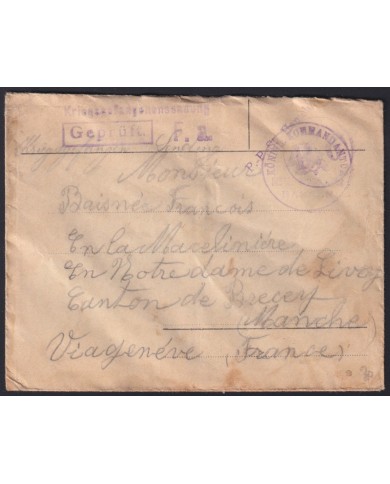 Kriegsgefangenensendung
Geprüft. F. R.
Sending
KÖNIGL. KOMMANDANTUR
Monsieur
Baisnée François
En la Macelinière
En Notre dame de Livoy
Canton de Brecey
(Manche)
Via genéve (France)